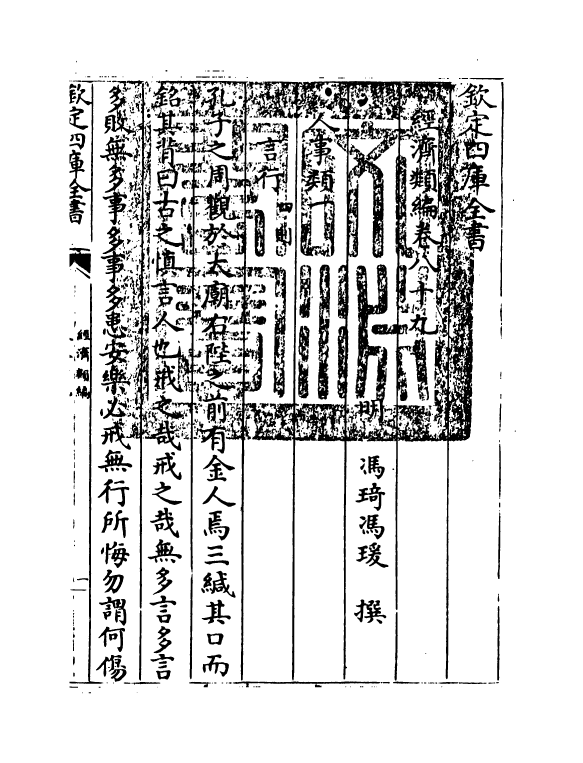 欽定四庫全書
經濟類編卷八十九
明 馮琦馮瑗 撰
人事類一
言行
孔子之周觀於太廟右陛之前有金人焉三緘其口而
銘其背曰古之慎言人也戒之哉戒之哉無多言多言
多敗無多事多事多患安樂必戒無行所悔勿謂何傷
欽定四庫全書
經濟類編
一